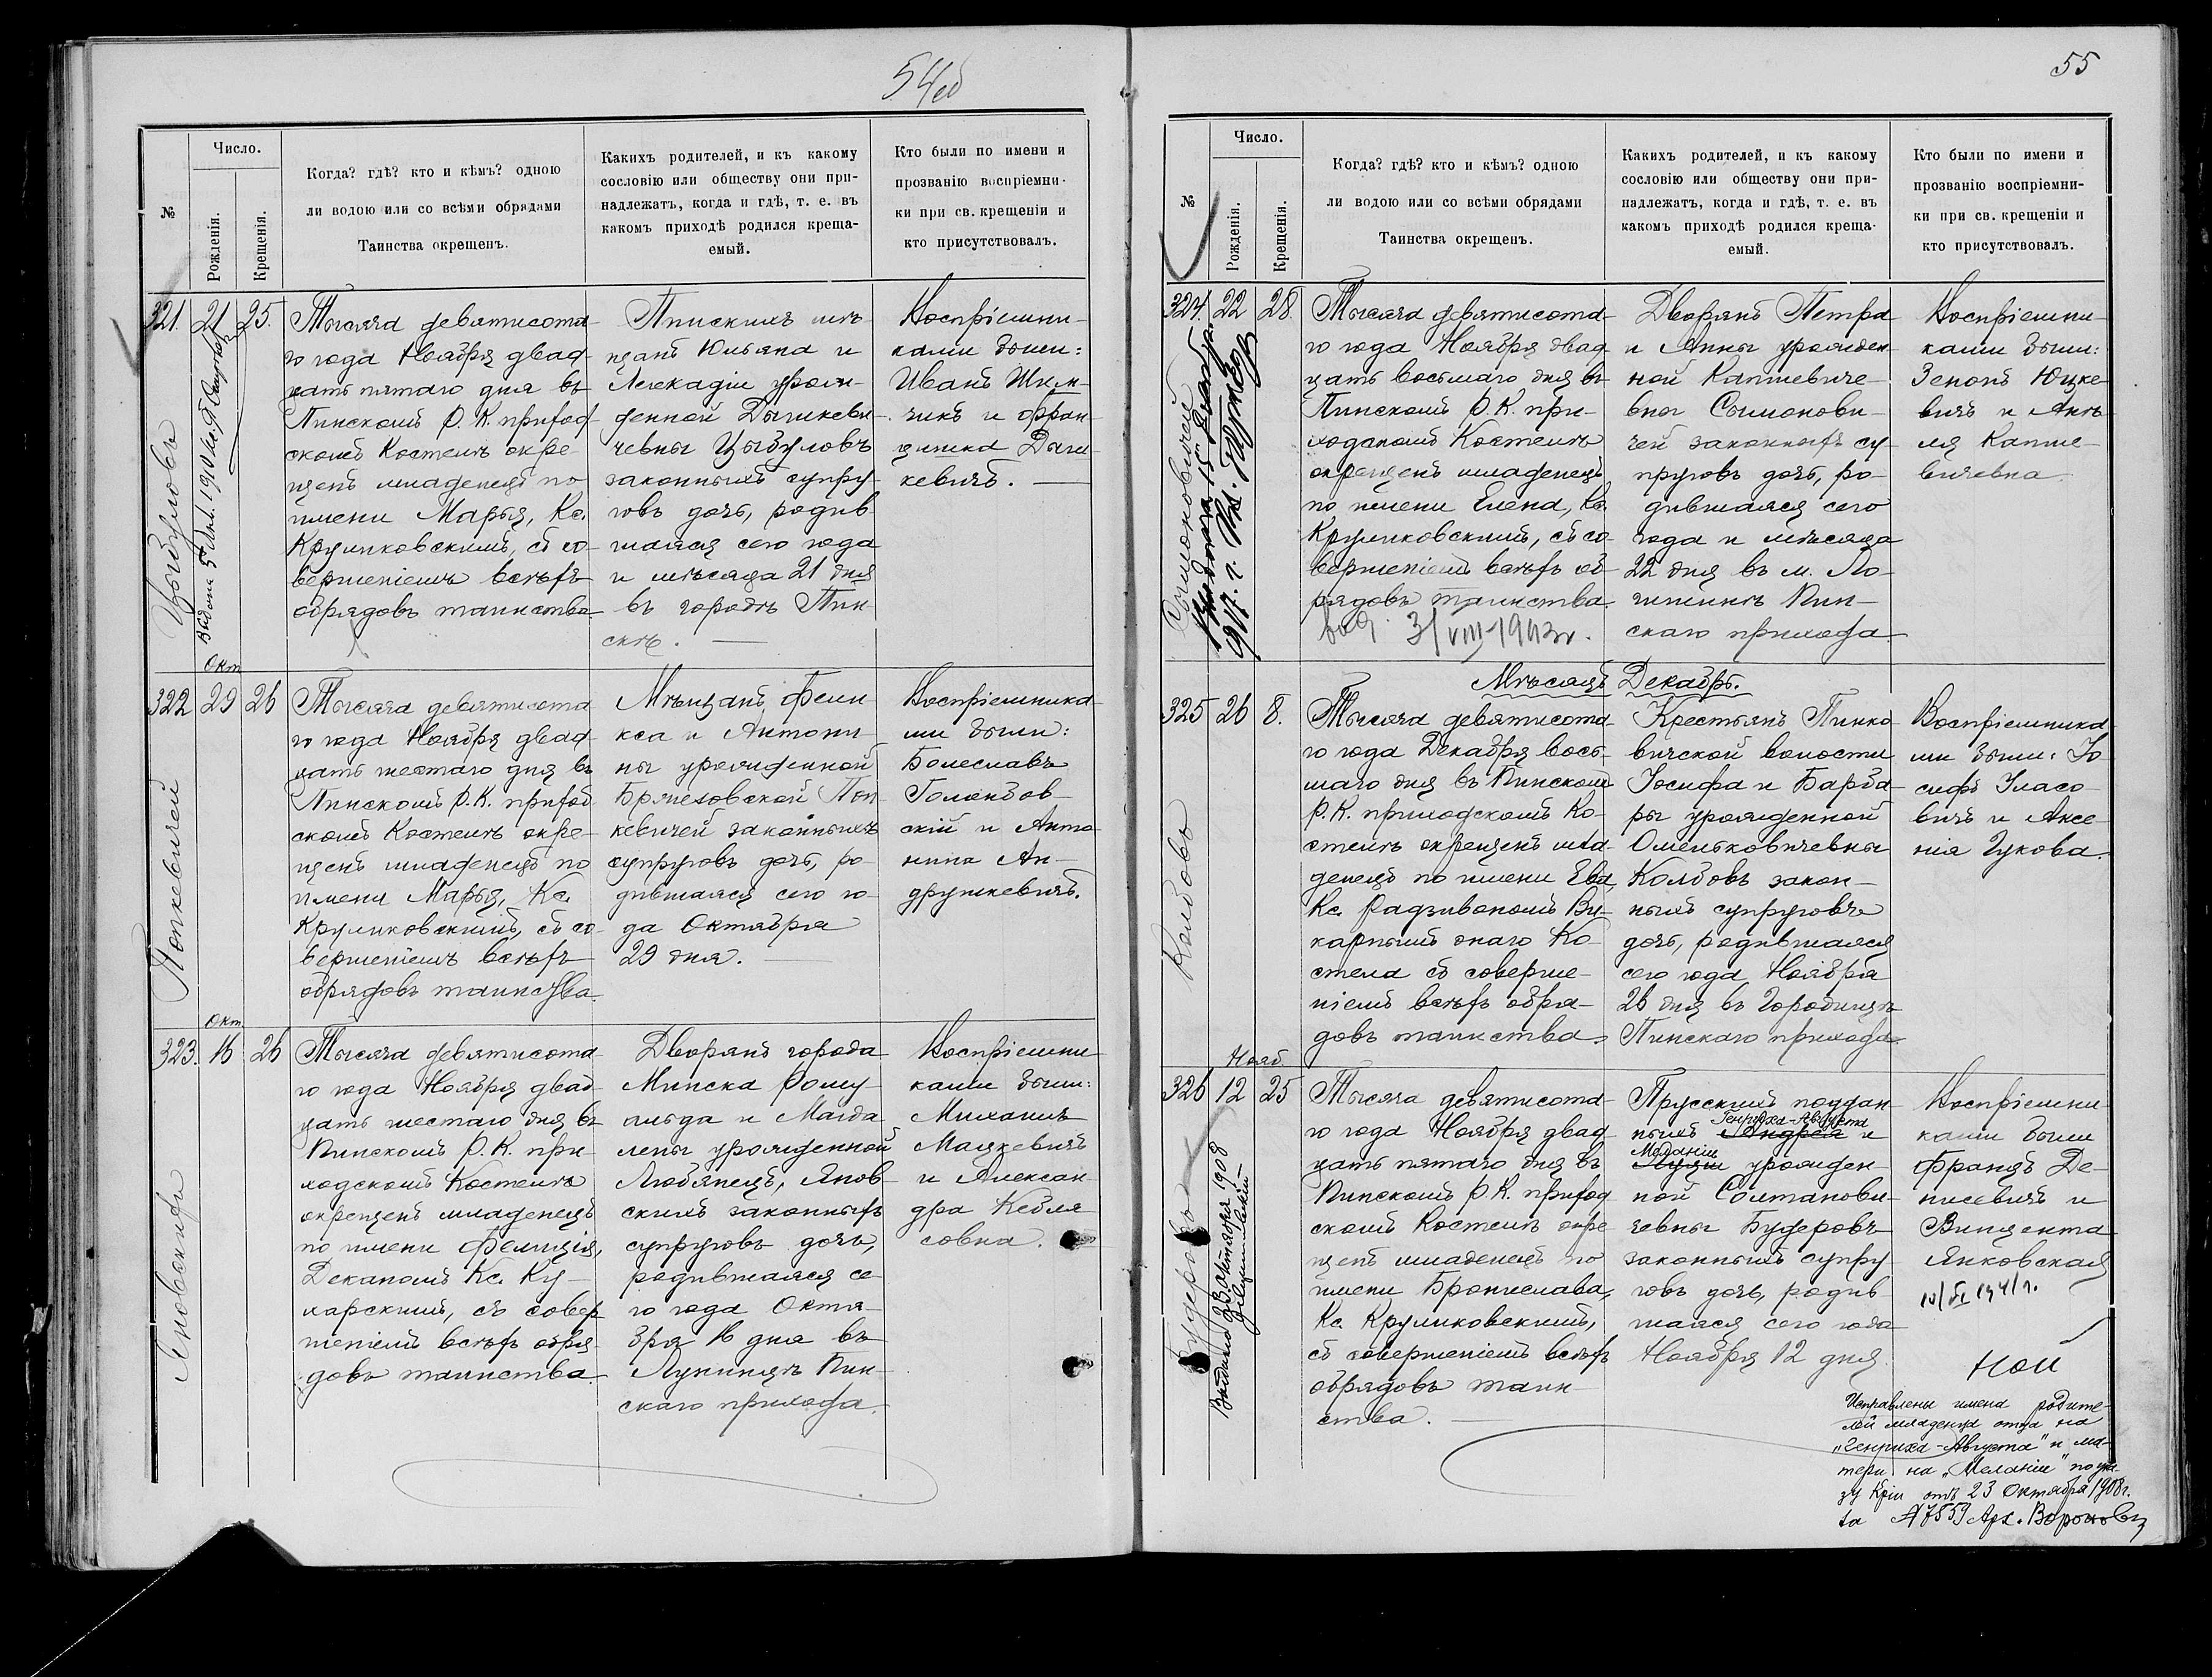 54об
№
Число.
Рожденія.
Крещенія.
Когда? гдѣ? кто и кѣмъ? одною
ли водою или со всѣми обрядами
Таинства окрещенъ.
Каких��ъ родителей, и къ какому
сословію или обществу они при-
надлежатъ, когда и гдѣ, т. е. въ
какомъ приходѣ родился креща-
емый.
Кто были по имени и
прозванію воспріемни-
ки при св. крещеніи и
кто присутствовалъ.
321. 21 25.
Цыбуловъ
Тысяча девятисота-
го года Ноября двад-
цать пятаго дня въ
Пинскомъ Р. К. приход-
скомъ Костелѣ окре-
щенъ младенецъ по
имени Марья, Кс.
Куликовскимъ, съ со-
вершеніемъ всѣхъ
обрядовъ таинства.
Пинскихъ мѣ-
щанъ Юльяна и
Леокадіи урож-
денной Дышкеви-
чевны Цыбуловъ
законныхъ супру-
говъ дочь, родив-
шаяся сего года
и мѣсяца 21 дня
въ городѣ Пин-
скѣ.
Воспріемни-
ками были:
Иванъ Шкля-
чикъ и Фран-
цишка Дыш-
кевичъ.
Окт
322 29 26
Попкевичей
Тысяча девятисота
го года Ноября двад-
цать шестаго дня въ
Пинскомъ Р. К. приход
скомъ Костелѣ окре-
щенъ младенецъ по
имени Марья, Кс.
Куликовскимъ, съ со-
вершеніемъ всѣхъ
обрядовъ таинства.
Мѣщанъ Фели-
кса и Антони-
ны урожденной
Поп-
кевичей законныхъ
супруговъ дочь, ро-
дившаяся сего го-
да Октября
29 дня.
Воспріемника-
ми были:
Болеславъ
Голембов-
скій и Анто-
нина Ан-
друшкевичъ.
Окт.
323. 16 26
Яновскихъ
Тысяча девятисота-
го года Ноября двад-
цать шестаго дня въ
Пинскомъ Р. К. при-
ходскомъ Костелѣ
окрещенъ младенецъ
по имени Фелиція,
Деканомъ Кс. Ку-
харскимъ, съ совер
шеніемъ всѣхъ обря-
довъ таинства.
Дворянъ города
Минска Рому-
альда и Магда-
лены урожденной
Любянецъ, Янов-
скихъ законныхъ
супруговъ дочь,
родившаяся се-
го года Октя-
бря 16 дня въ
Лунинцѣ Пин-
скаго прихода.
Воспріемни-
ками были:
Михаилъ
Мацкевичъ
и Алексан-
дра
совна.
55
№
Число.
Рожденія.
Крещенія.
Когда? гдѣ? кто и кѣмъ? одною
ли водою или со всѣми обрядами
Таинства окрещенъ.
Какихъ родителей, и къ какому
сословію или обществу они при-
надлежатъ, когда и гдѣ, т. е. въ
какомъ приходѣ родился креща-
емый.
Кто были по имени и
прозванію воспріемни-
ки при св. крещеніи и
кто присутствовалъ.
324. 22 28.
Сымоновичей
Тысяча девятисота-
го года Ноября двад
цать восьмаго дня въ
Пинскомъ Р. К. при-
ходскомъ Костелѣ
окрещенъ младенецъ
по имени Елена, Кс.
Куликовскимъ, съ со-
вершеніемъ всѣхъ об-
рядовъ таинства.
3/VIII-1943г.
Дворянъ Петра
и Анны урожден-
ной Капшевиче-
вны Сымонови-
чей законныхъ су-
пруговъ дочь, ро-
дившаяся сего
года и мѣсяца
22 дня въ м. Ло-
гишинѣ Пин-
скаго прихода.
Воспріемни-
ками были:
Зенонъ Юцке-
вичъ и Анѣ-
ля Капше-
вичевна.
Мѣсяцъ Декабрь.
325 26 8.
Колбовъ
Тысяча девятисота-
го года Декабря вось-
маго дня въ Пинскомъ
Р. К. приходскомъ Ко-
стелѣ окрещенъ мла-
денецъ по имени Ева,
Кс. Радзивономъ Ви-
карнымъ онаго Ко-
стела съ соверше-
ніемъ всѣхъ обря-
довъ таинства.
Крестьянъ Пинко-
вичской волости
Іосифа и Барба-
ры урожденной
Омельковичевны
Колбовъ закон-
ныхъ супруговъ
дочь, родившаяся
сего года Ноября
26 дня въ Городищѣ
Пинскаго прихода.
Воспріемника-
ми были: Іо-
сифъ Уласо-
вичъ и Аксе-
нія Гукова.
Нояб.
326 12 25
Будеровъ
Тысяча девятисота-
го года Ноября двад-
цать пятаго дня въ
Пинскомъ Р. К. приход
скомъ Костелѣ окре
щенъ младенецъ по
имени Бронислава,
Кс. Куликовскимъ,
съ совершеніемъ всѣхъ
обрядовъ таин-
ства.
Прусскихъ поддан-
Генриха-Августа
ныхъ Андрея и
Меланіи
Луціи урожден-
ной Солтанови-
чевны Будеровъ
законныхъ супру
говъ дочь, родив-
шаяся сего года
Ноября 12 дня
Воспріемни-
ками были
Францъ Де-
нисевичъ и
Винцента
Янковская
10/VI 1941г.
Исправлены имена родите-
лей младенца отца на
„Генриха-Августа" и ма-
тери на „Меланіи" по ука-
зу Кріи отъ 23 Октября 1908г.
за №7859